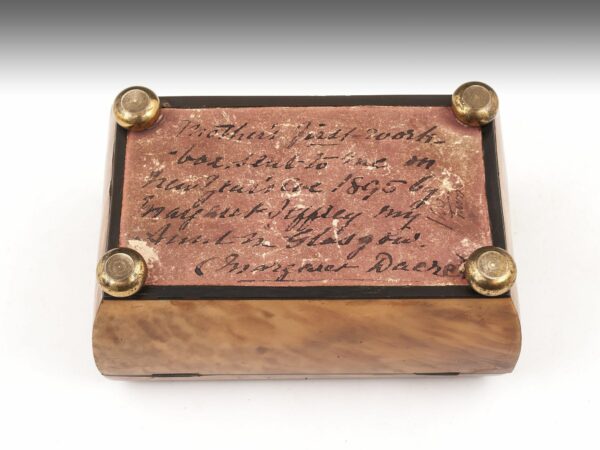 Mother's first work-
-box, sent to me on
New Year's Eve 1895 by
Margaret Jeffrey my
Aunt in Glasgow.
Margaret Dacre